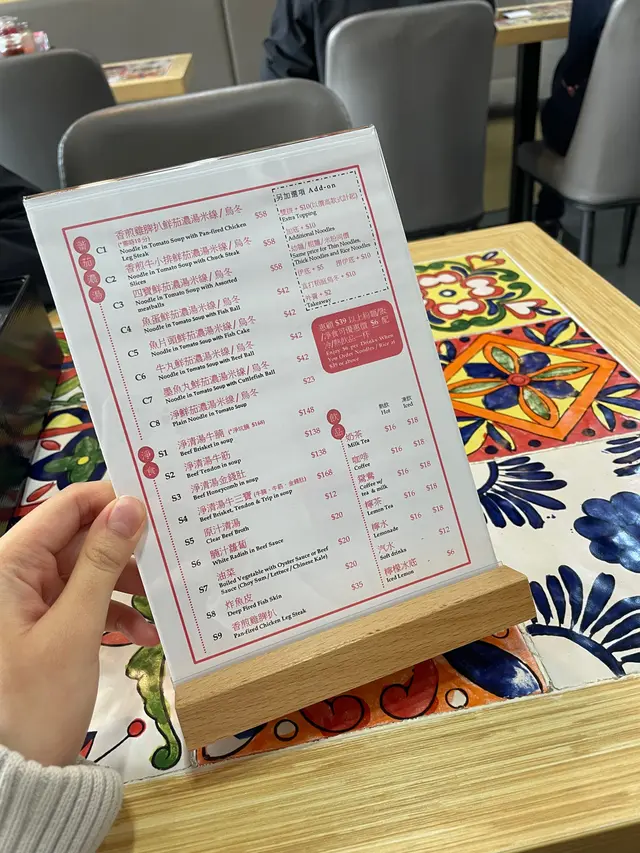 蕃茄濃湯
C1 香煎雞脾扒鮮茄濃湯米線/烏冬 $58
Noodle in Tomato Soup with Pan-fired Chicken
Leg Steak
C2 香煎牛小排鮮茄濃湯米線/烏冬 $58
Noodle in Tomato Soup with Chuck Steak
Slices
C3 四寶鮮茄濃湯米線/烏冬 $58
Noodle in Tomato Soup with Assorted
meatballs
C4 魚蛋鮮茄濃湯米線/烏冬 $42
Noodle in Tomato Soup with Fish Ball
C5 魚片頭鮮茄濃湯米線/烏冬 $42
Noodle in Tomato Soup with Fish Cake
C6 牛丸鮮茄濃湯米線/烏冬 $42
Noodle in Tomato Soup with Beef Ball
C7 墨魚丸鮮茄濃湯米線/烏冬 $42
Noodle in Tomato Soup with Cuttlefish Ball
C8 淨鮮茄濃湯米線/烏冬 $23
Plain Noodle in Tomato Soup
淨食
S1 淨清湯牛腩 $148
Beef Brisket in soup
S2 淨清湯牛筋 $138
Beef Tendon in soup
S3 淨清湯金錢肚 $138
Beef Honeycomb in soup
S4 淨清湯牛三寶 (牛腩、牛筋、金錢肚) $168
Beef Brisket, Tendon & Trip in soup
S5 原汁清湯 $12
Clear Beef Broth
S6 腩汁蘿蔔 $20
White Radish in Beef Sauce
S7 油菜 $20
Boiled Vegetable with Oyster Sauce or Beef
Sauce (Choy Sum / Lettuce / Chinese Kale)
S8 炸魚皮 $20
Deep Fired Fish Skin
S9 香煎雞脾扒 $35
Pan-fired Chicken Leg Steak
另加選項 Add-on
Extra Topping
加底 + $10
Additional Noodles
Same price for Thin Noodles,
Thick Noodles and Rice Noodles
+ $10
+ $2
惠顧 $39 以上
$6
Enjoy $6 off Drinks When
You Order Noodles / Rice at
$39 or above
飲品
熱飲 凍飲
Hot Iced
奶茶 $16 $18
Milk Tea
咖啡 $16 $18
Coffee
鴛鴦 $16 $18
Coffee w/
tea & milk
檸茶 $16 $18
Lemon Tea
檸水 $16 $18
Lemonade
汽水 $12
Soft drinks
檸檬冰底 $6
Iced Lemon